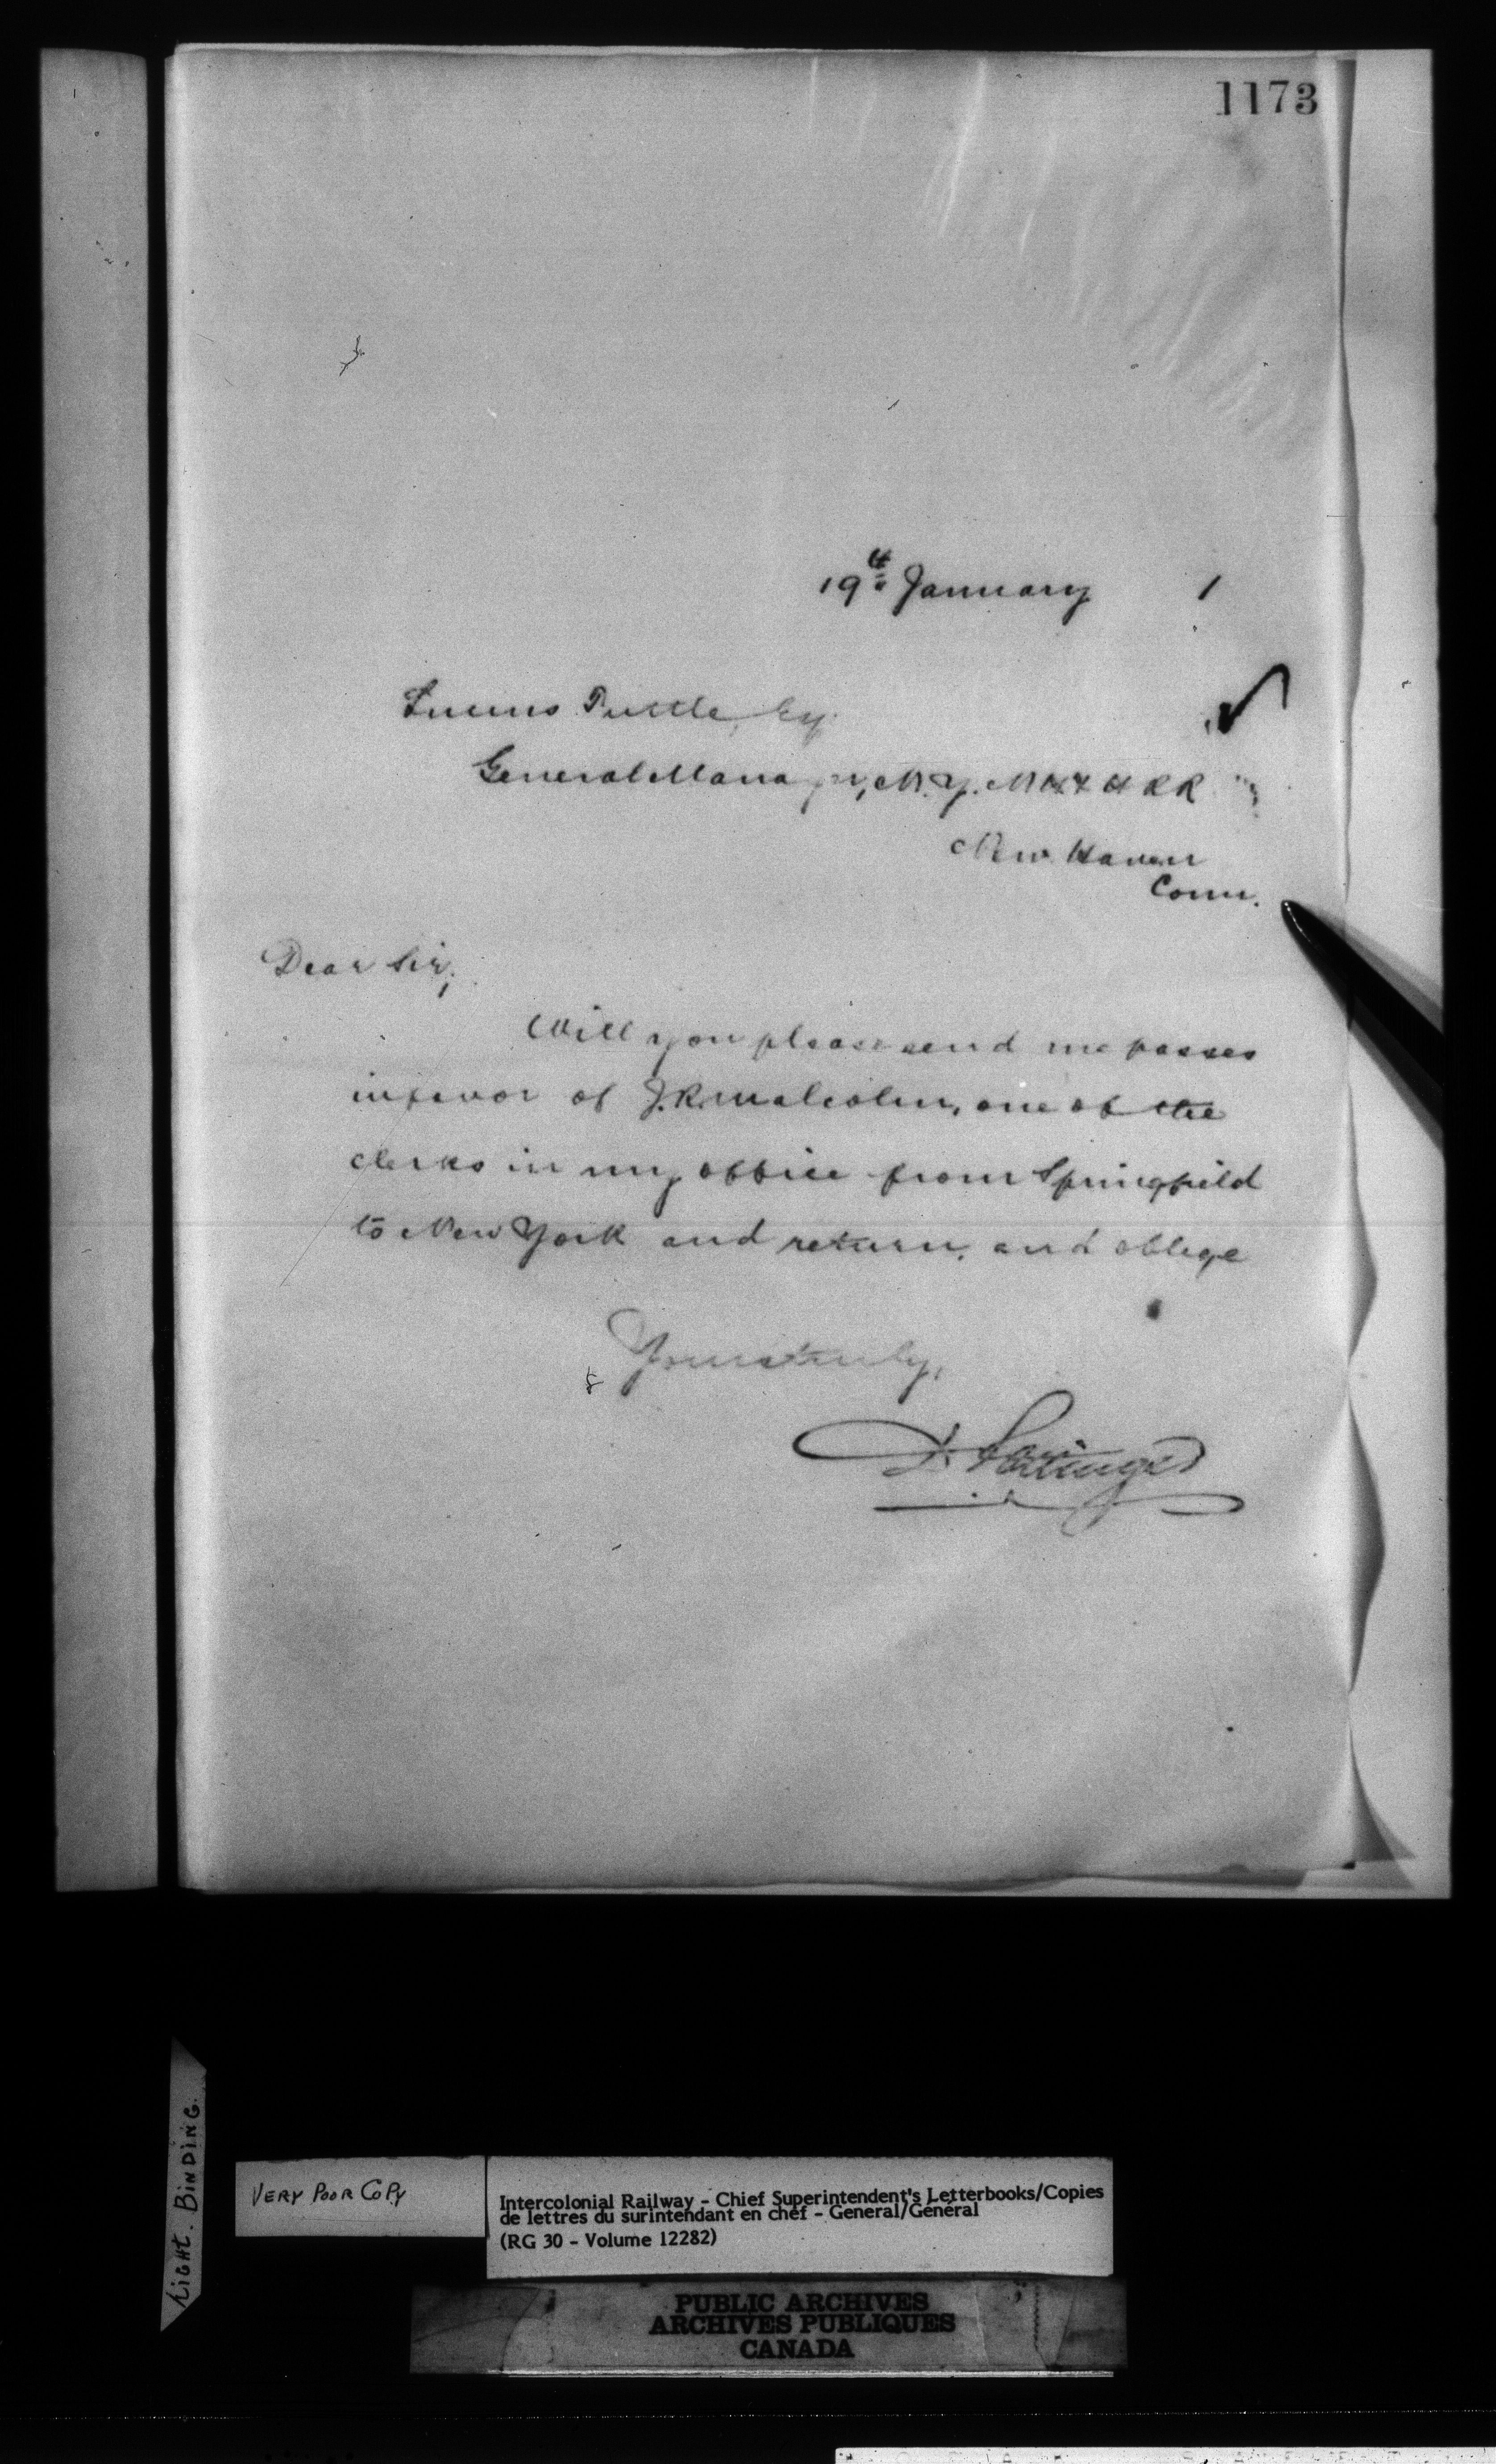 1173
19th January 1
Lucius Tuttle, Esq
General Manager, N.Y. N H & H RR
New Haven
Conn.
Dear Sir,
Will you please send me passes
in favor of J. R. Malcolm, one of the
clerks in my office from Springfield
to New York and return, and oblige
Yours truly,
D. Pottinger
LIGHT. BINDING.
VERY POOR COPY
Intercolonial Railway - Chief Superintendent's Letterbooks/Copies
de lettres du surintendant en chef - General/Général
(RG 30 - Volume 12282)
PUBLIC ARCHIVES
ARCHIVES PUBLIQUES
CANADA